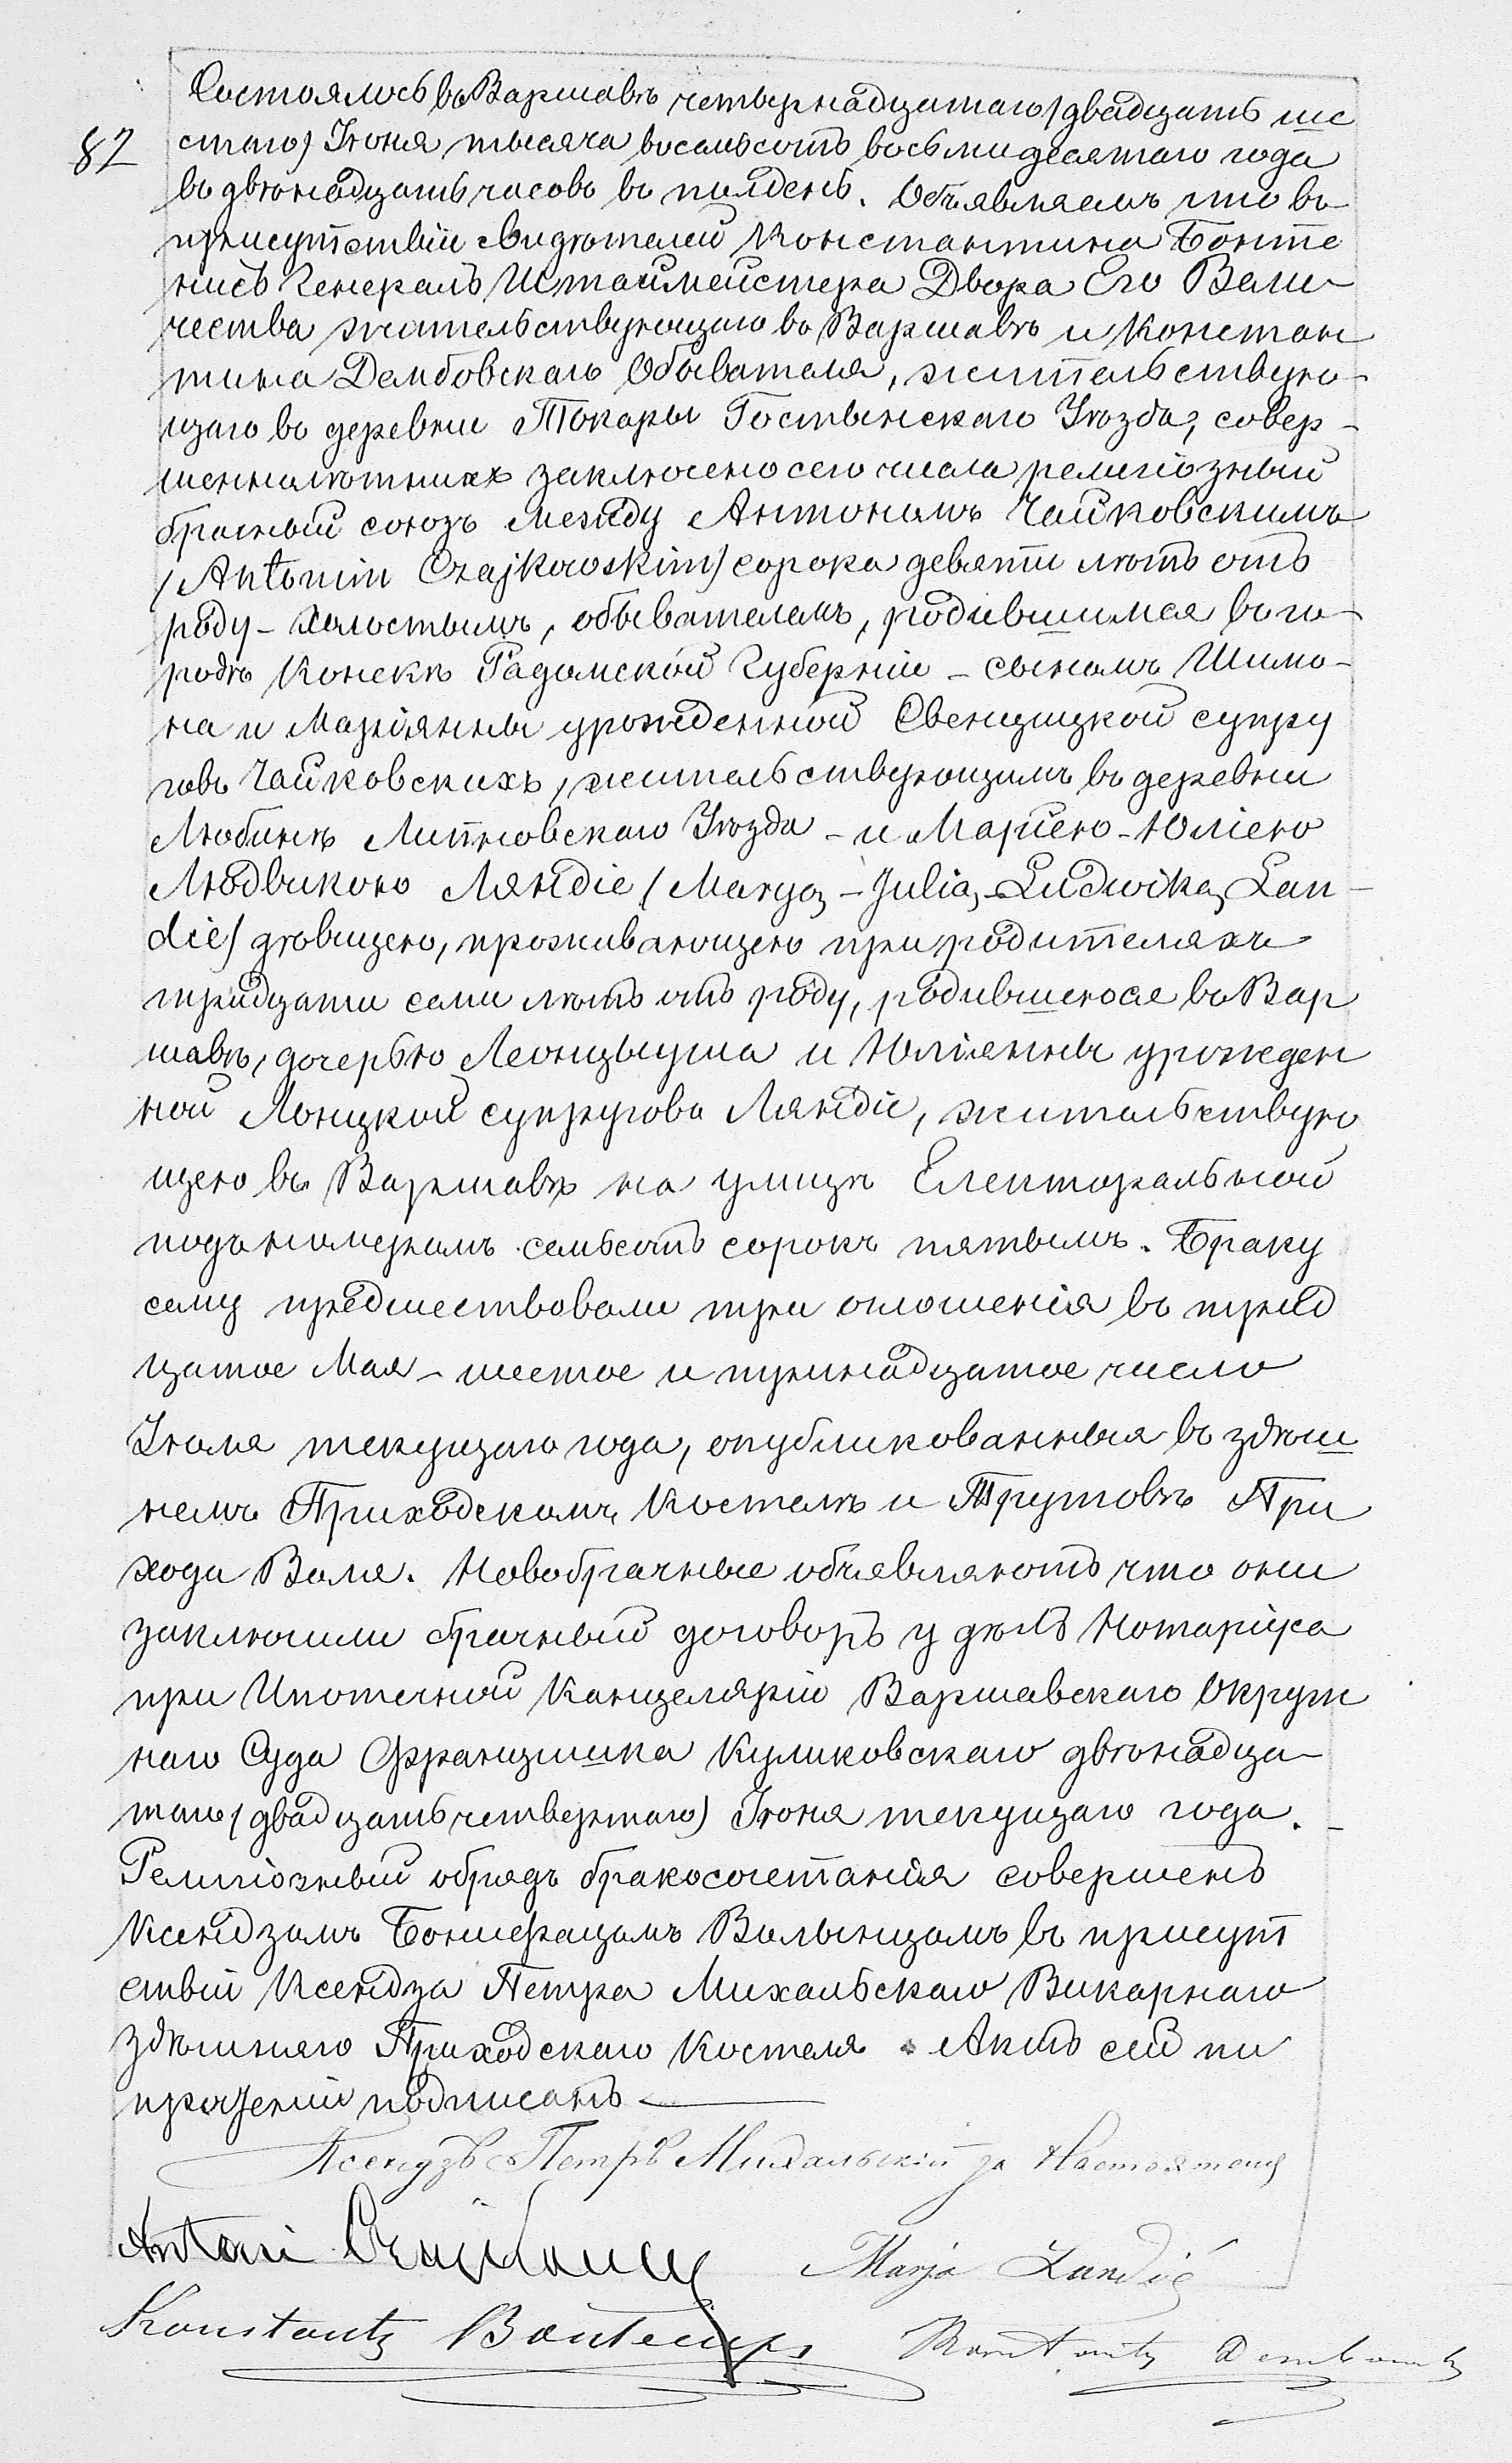 Состоялось въ Варшавѣ четырнадцатаго (двадцать ше
82
стаго) Іюня тысяча восемьсотъ восьмидесятаго года
въ двѣнадцать часовъ въ полдень. Объявляемъ что въ
присутствіи свидѣтелей Константина Бонте
Генералъ Шталмейстера Двора Его Вели-
чества жительствующаго въ Варшавѣ и Констан
тина Дембовскаго Обывателя, жительствую-
щаго въ деревни Токары Гостынскаго Уѣзда, совер-
шеннолѣтнихъ заключено сего числа религіозный
брачный союзъ между Антонимъ Чайковскимъ
(Antonim Czajkowskim) сорока девяти лѣтъ отъ
роду - холостымъ, обывателемъ, родившимся въ го-
родѣ Конскѣ Радомской Губерніи - сыномъ Шимо-
на и Маріянны урожденной Свенцицкой супру
говъ Чайковскихъ, жительствующимъ въ деревни
Любинѣ Липновскаго Уѣзда - и Маріею - Юліею
Людвикою Ляндіе (Maryą - Julią - Ludwiką Lan-
dié) дѣвицею, проживающею при родителяхъ
тридцати семи лѣтъ отъ роду, родившеюся въ Вар
шавѣ, дочерью Леонцыуша и Юліянны урожден
ной Лонцкой супруговъ Ляндіе, жительствую
щею въ Варшавѣ на улицѣ Електоральной
подъ номеромъ семьсотъ сорокъ пятымъ. Браку
сему предшествовали три оглошенія въ трид
цатое Мая - шестое и тринадцатое число
Іюня текущаго года, опубликованныя въ здѣш
немъ Приходскомъ Костелѣ и Трутовѣ При
хода Воля. Новобрачные объявляютъ что они
заключили брачный договоръ у дѣлъ Нотаріуса
при Ипотечной Канцеляріи Варшавскаго Окруж
наго Суда Францишка Куликовскаго двѣнадца-
таго (двадцать четвертаго) Іюня текущаго года. -
Религіозный обрядъ бракосочетанія совершенъ
Ксендзомъ Бонифацомъ Волынцомъ въ присут
ствіи Ксендза Петра Михальскаго Викарнаго
здѣшняго Приходскаго Костеля. Актъ сей по
прочтеніи подписанъ
Ксендзъ Петръ Михальскій за Настоятеля
Antoni Czajkowski
Marja Landié
Konstanty Bontemps
Konstanty Dembowski